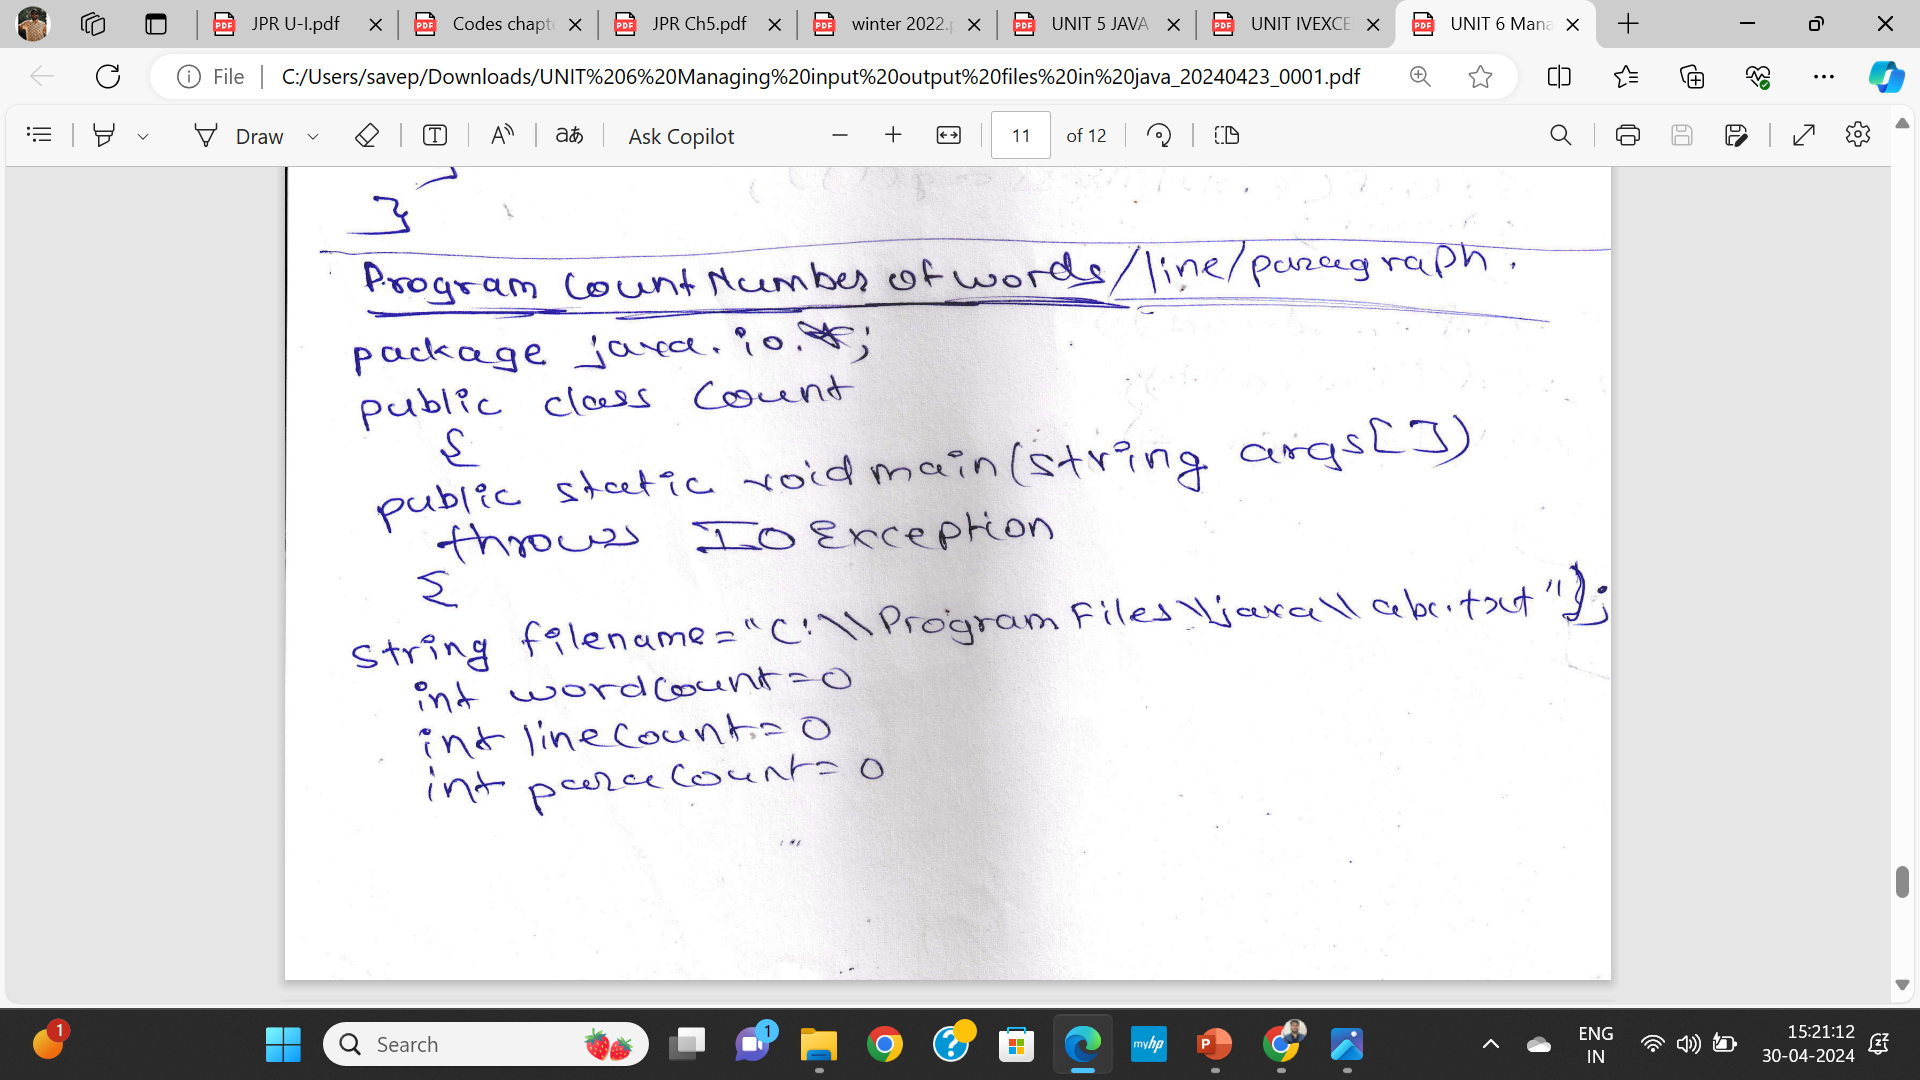 JPR U-I.pdf
Codes chapt
JPR Ch5.pdf
winter 2022.p
UNIT 5 JAVA
UNIT IVEXCE
UNIT 6 Mana
File
C:/Users/savep/Downloads/UNIT%206%20Managing%20input%20output%20files%20in%20java_20240423_0001.pdf
Draw
Ask Copilot
11 of 12
}
Program Count Number of words/line/paragraph.
package java.io.*;
public class Count
{
public static void main(string args[])
throws IO Exception
{
string filename="C:\\Program Files\\java\\abc.txt");
int wordcount=0
int lineCount=0
int paraCount=0
1
Search
1
myhp
ENG
IN
15:21:12
30-04-2024